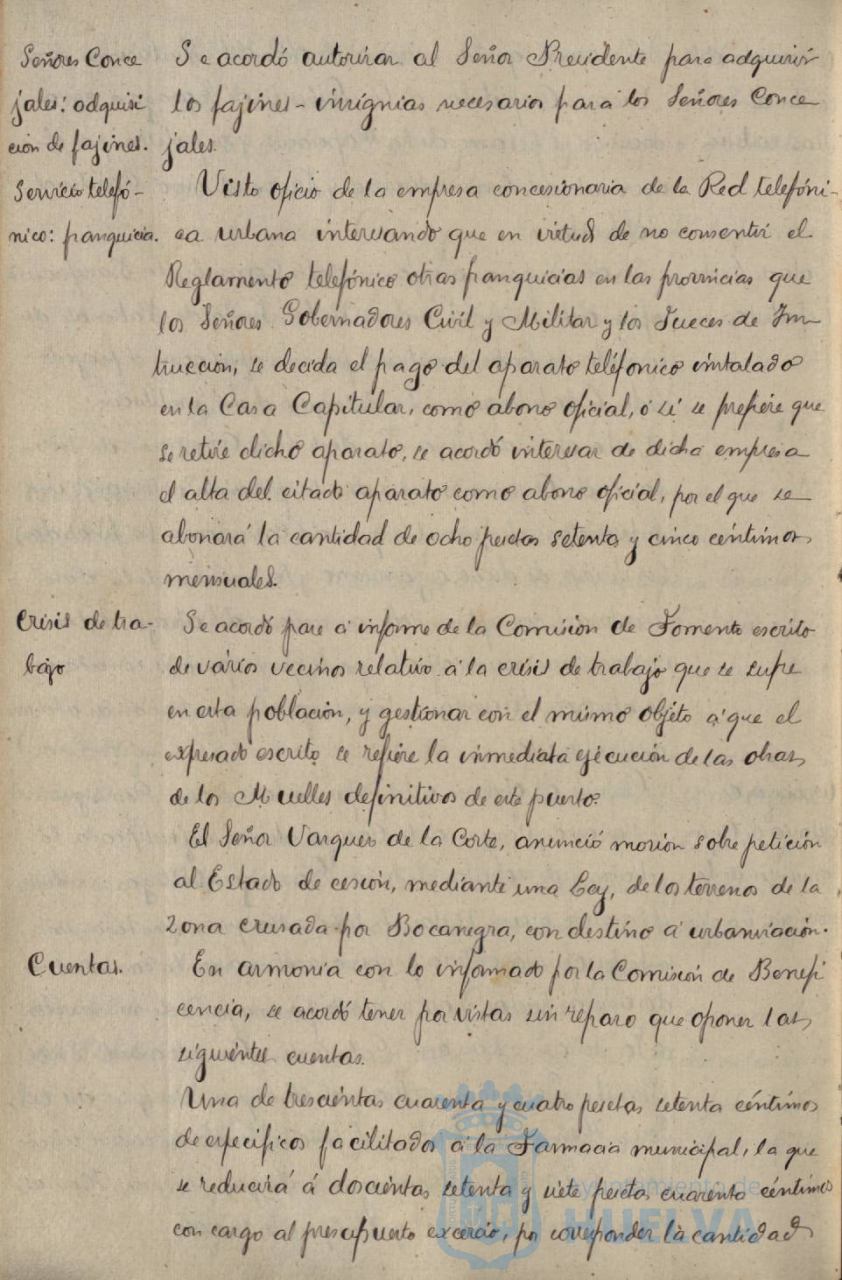 Señores Conce
jales: adquisi
ción de fajines.
Se acordó autorizar al Señor Presidente para adquirir
los fajines-insignias necesarios para los Señores Conce
jales.
Servicio telefó-
nico: franquicia.
Visto oficio de la empresa concesionaria de la Red telefóni-
ca urbana interesando que en virtud de no consentir el
Reglamento telefónico otras franquicias en las provincias que
los Señores Gobernadores Civil y Militar y los Jueces de Ins
trucción, se decida el pago del aparato teléfonico instalado
en la Casa Capitular, como abono oficial, ó si se prefiere que
se retire dicho aparato, se acordó interesar de dicha empresa
el alta del citado aparato como abono oficial, por el que se
abonará la cantidad de ocho pesetas setenta y cinco céntimos
mensuales.
Crisis de tra-
bajo
Se acordó pase á informe de la Comisión de Fomento escrito
de varios vecinos relativo á la crisis de trabajo que se sufre
en esta población, y gestionar con el mismo objeto á que el
expresado escrito se refiere la inmediata ejecución de las obras
de los Muelles definitivos de este puerto.
El Señor Vazquez de la Corte, anunció moción sobre petición
al Estado de cesión, mediante una Ley, de los terrenos de la
zona cruzada por Bocanegra, con destino á urbanización.
Cuentas.
En armonia con lo informado por la Comisión de Benefi
cencia, se acordó tener por vistas sin reparo que oponer las
siguientes cuentas.
Una de trescientas cuarenta y cuatro pesetas setenta céntimos
de especificos facilitados á la Farmacia municipal, la que
se reducirá á doscientas setenta y siete pesetas cuarenta céntimos
con cargo al presupuesto exterior, por corresponder la cantidad
Ayuntamiento de
HUELVA